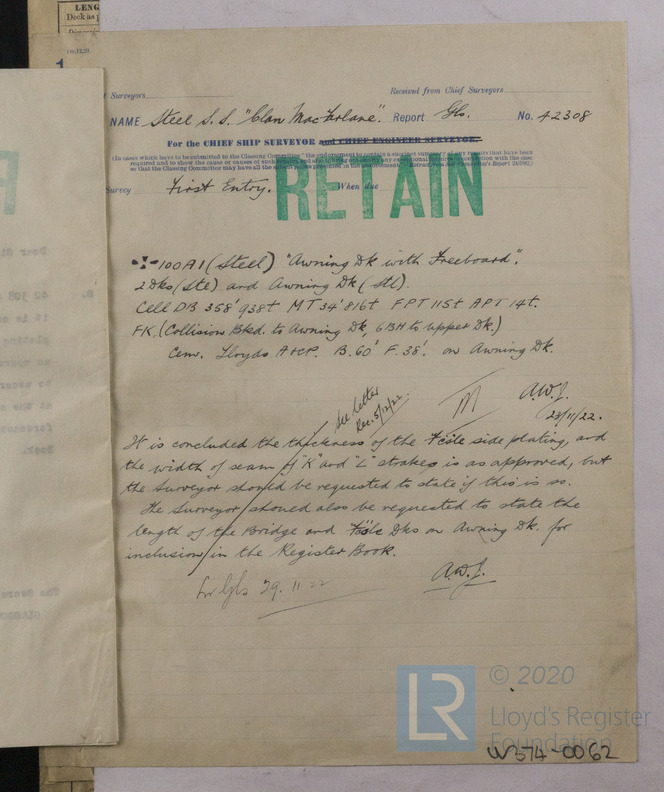 LENG
Deck as p
1
Surveyors
Received from Chief Surveyors
NAME Steel S.S. "Clan MacFarlane". Report Gls. No. 42308
For the CHIEF SHIP SURVEYOR and CHIEF ENGINEER SURVEYOR
(In cases which have to be submitted to the Classing Committee
required and to show the cause or causes of such
so that the Classing Committee may have all the
Survey First Entry. When due
RETAIN
100A1 (Steel) "Awning Dk with Freeboard".
2 Dks (Ste) and Awning Dk (Stl).
Cell DB 358' 938t MT 34' 816t FPT 115t APT 14t.
FK. (Collision Bkd. to Awning Dk, 6BH to Upper Dk.)
Cem. Lloyds A&CP. B.60' F.38'. on Awning Dk.
See letter
Rec. 5/12/22.
A.W.J.
23/11/22.
It is concluded the thickness of the Fcsle side plating, and
the width of seam of "K" and "L" strakes is as approved, but
the Surveyor should be requested to state if this is so.
The Surveyor should also be requested to state the
length of the Bridge and Fcsle Dks on Awning Dk. for
inclusion in the Register Book.
A.W.J.
Lr Gls 29.11.22
LR © 2020
Lloyd's Register
Foundation
W374-0062